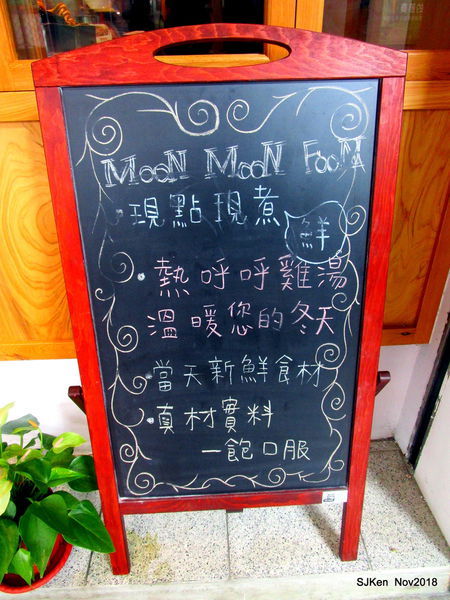 MooN MooN FooD
·現點現煮
鮮
·熱呼呼雞湯
溫暖您的冬天
·當天新鮮食材
·真材實料
一飽口服
SJKen Nov2018